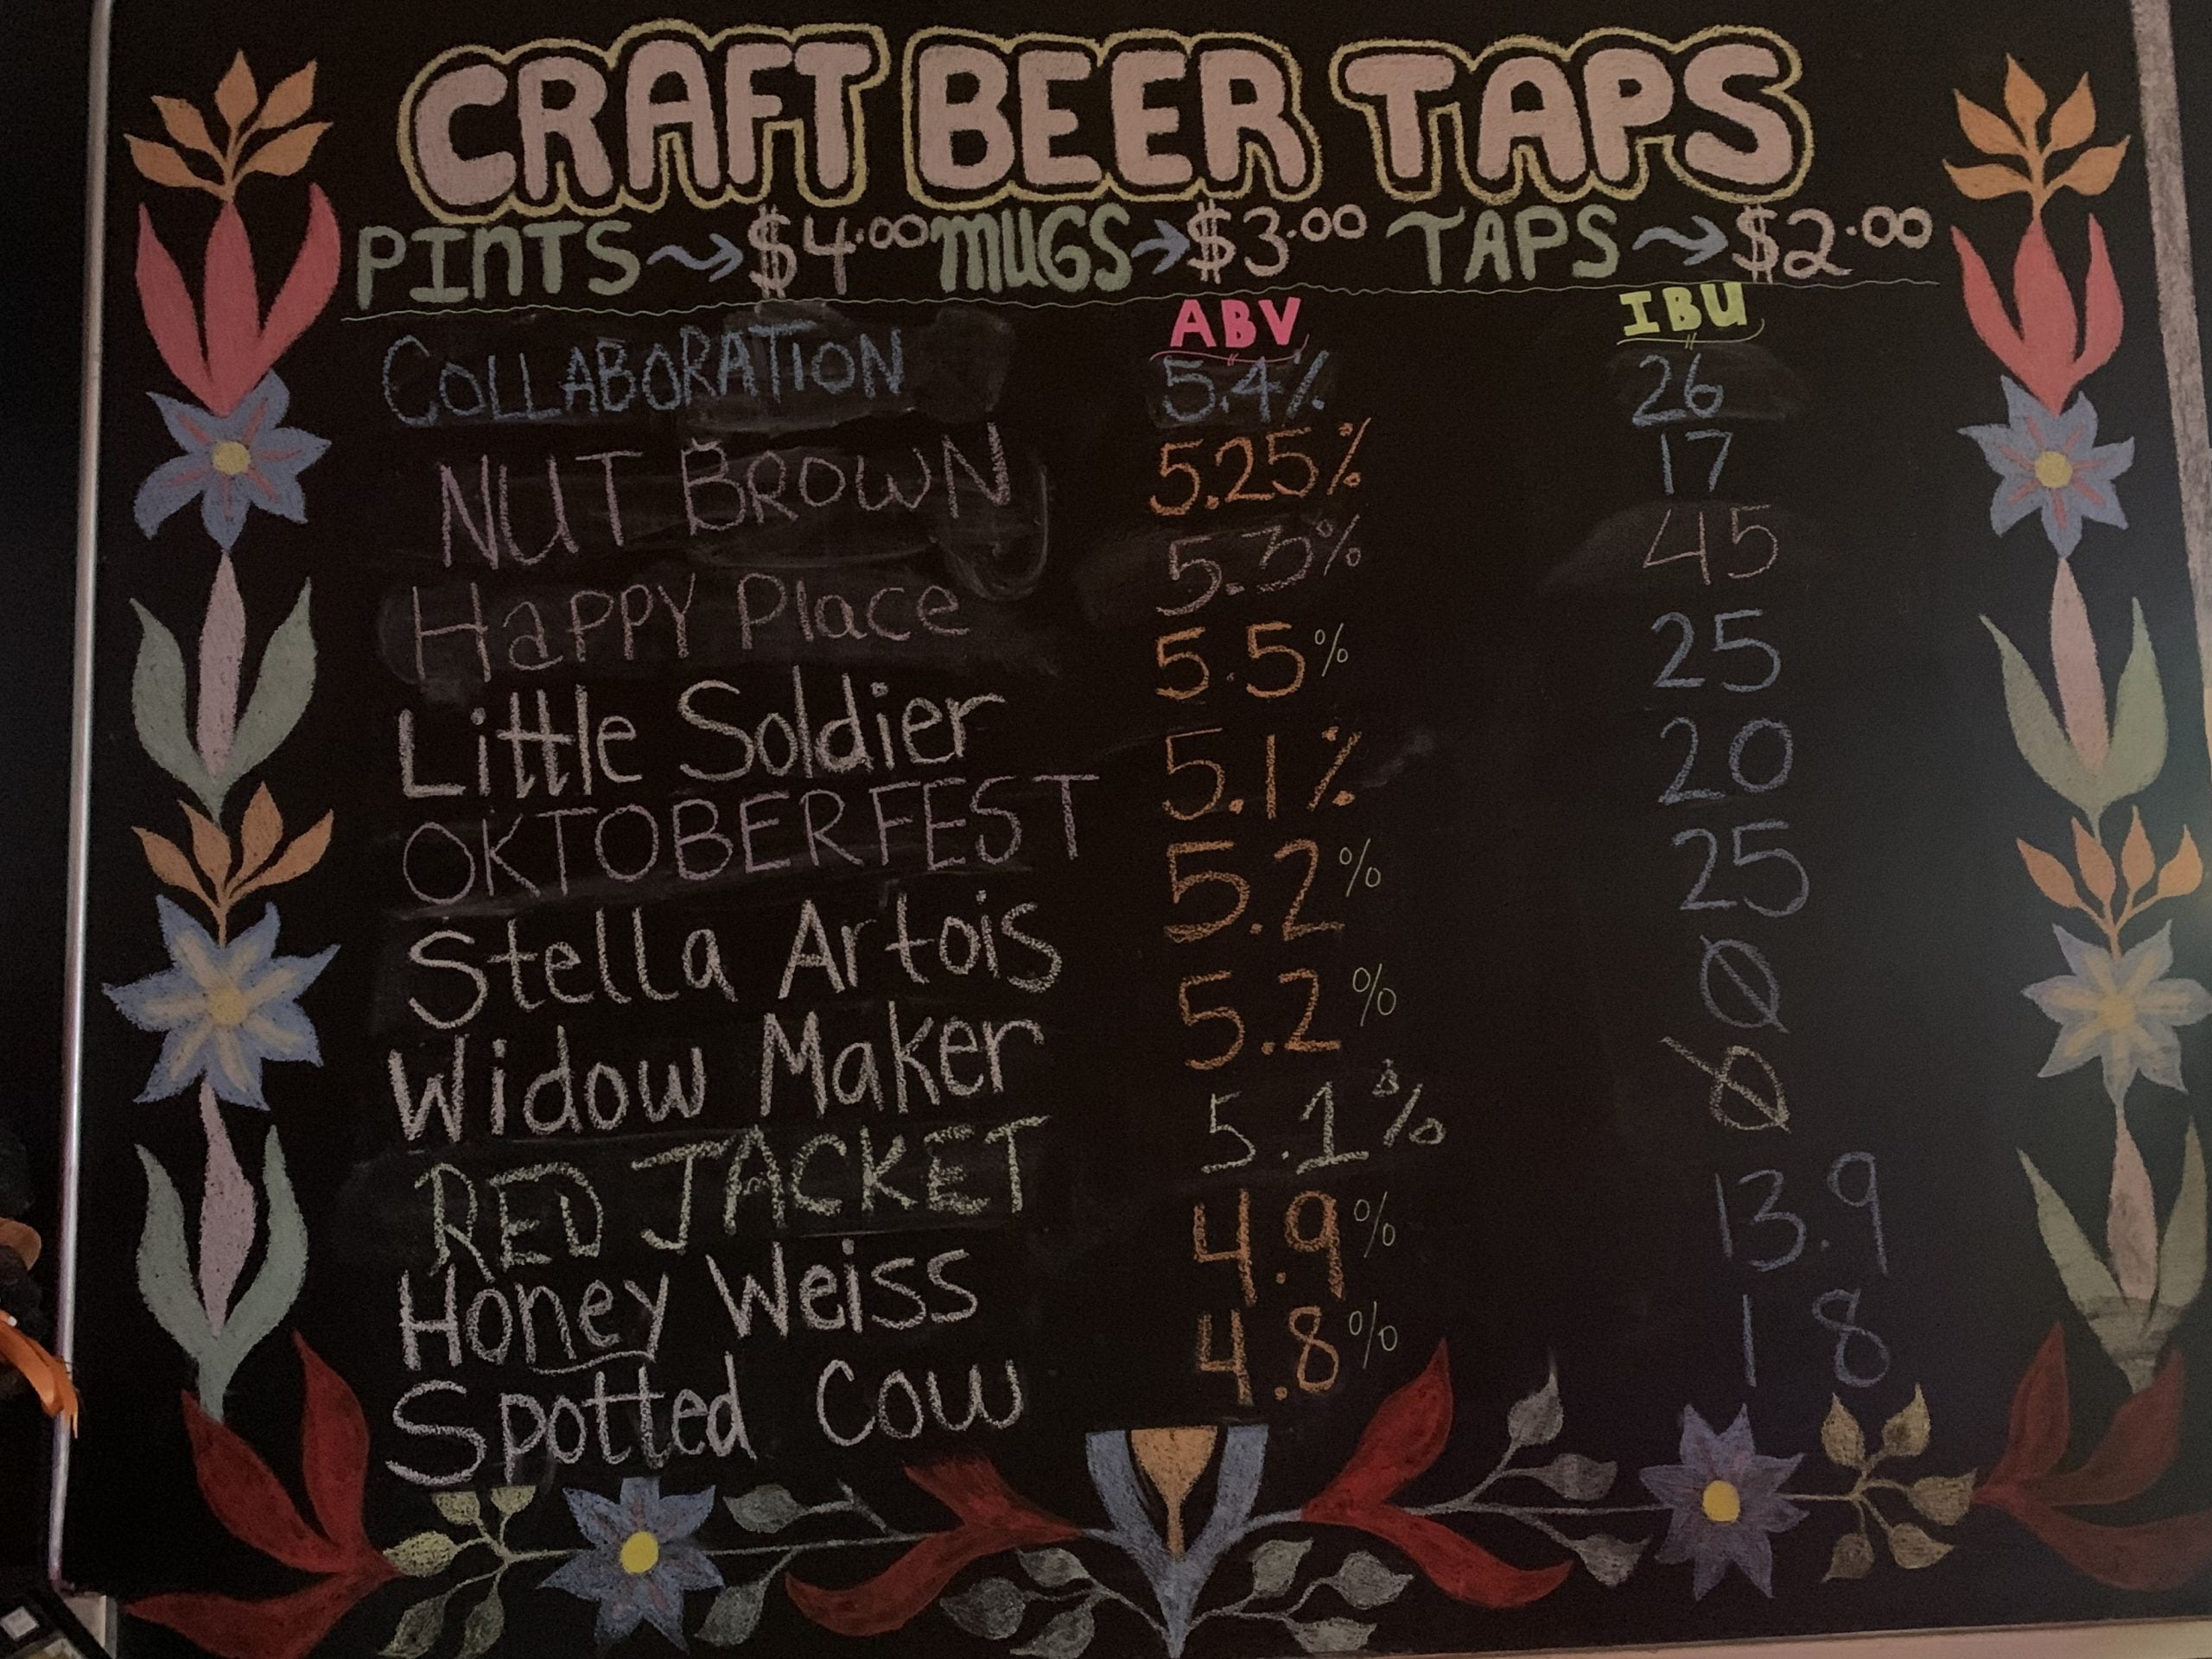 CRAFT BEER TAPS
PINTS → $4.00 MUGS → $3.00 TAPS → $2.00
ABV IBU
COLLABORATION 5.4% 26
NUT BROWN 5.25% 17
Happy Place 5.3% 45
Little Soldier 5.5% 25
OKTOBERFEST 5.1% 20
Stella Artois 5.2% 25
Widow Maker 5.2% Ø
RED JACKET 5.1% Ø
Honey Weiss 4.9% 13.9
Spotted Cow 4.8% 18